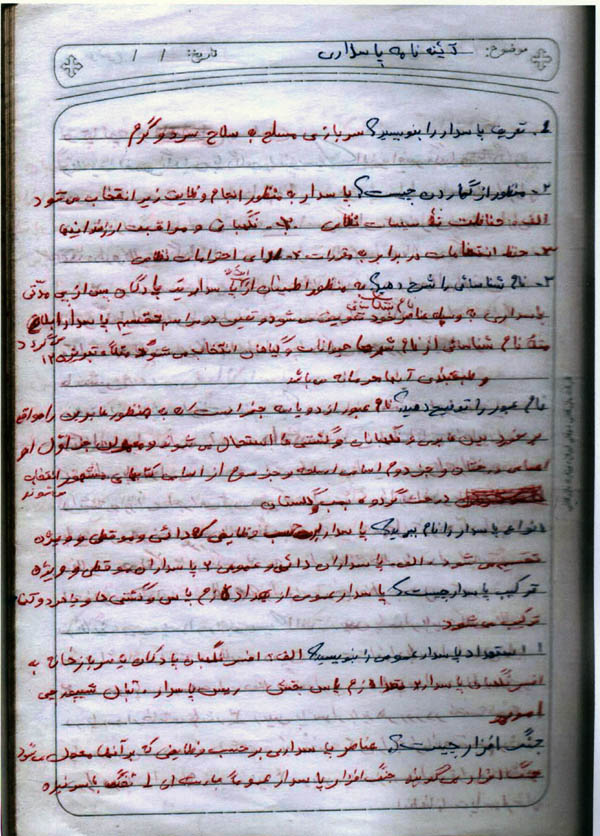 موضوع: آئینه نامه پاسداری تاریخ: / /
۱. تعریف پاسدار را بنویسید؟ سربازی مسلح به سلاح سرد و گرم
۲. منظور از گماردن چیست؟ پاسدار به منظور انجام وظایف زیر انتخاب می شود
الف. حفاظت تأسیسات نظامی ۲. نگهبانی و مراقبت از زندانیها
۳. حفظ انتظامات در برابر به مقررات ۴. احترامات نظامی
۳. نام شناسائی را شرح دهید؟ به منظور اطمینان از پاسدار یک پادگان پس از مدتی
پاسداری به وسیله عناصر خود تعویض می شود و تعیین در مراسم تقسیم پاسدار ابلاغ
نام شناسائی از نام شهرها حیوانات و گیاهان انتخاب می شود مثلاً تبریز ۱۲
و طبقه بندی آنها محرمانه می باشد
نام عبور را توضیح دهید؟ نام عبور از دو یا سه جزء است که به منظور عابرین را مواقع
برخورد بین عابرین و نگهبانان و گشتی ها استعمال می شود جزء اول از
اسامی درختان و جزء دوم اسامی اسلحه و جزء سوم از اسامی کتابهای مشهور انتخاب می شوند
گردو بمب گلستان
انواع پاسدار را نام ببرید؟ پاسدار بر حسب وظایفی که دائمی و موقتی و ویژه
تقسیم می شود. الف. پاسداران دائمی و عمومی ۲ پاسداران موقتی و ویژه
ترکیب پاسدار چیست؟ پاسدار عمومی از تعداد لازم پاس و گشتی ها و یا هر دو آنها
ترکیب می شود
استعداد پاسدار عمومی را بنویسید؟ الف. افسر نگهبان پادگان یا سربازخانه
افسر نگهبان پاسدار ۲ تعداد لازم پاس بخش رئیس پاسدار. شیپورچی
امربر
جنگ افزار چیست؟ عناصر پاسداری بر حسب وظایفی که بر آنها محول می شود
جنگ افزار می گویند جنگ افزار پاسدار عموماً عبارتند از ۱ تفنگ با سرنیزه